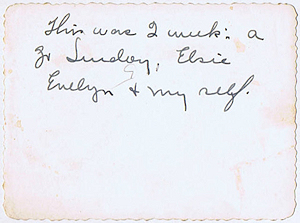 This was 2 week: a
Lindsay, Elsie
Evelyn & my self.